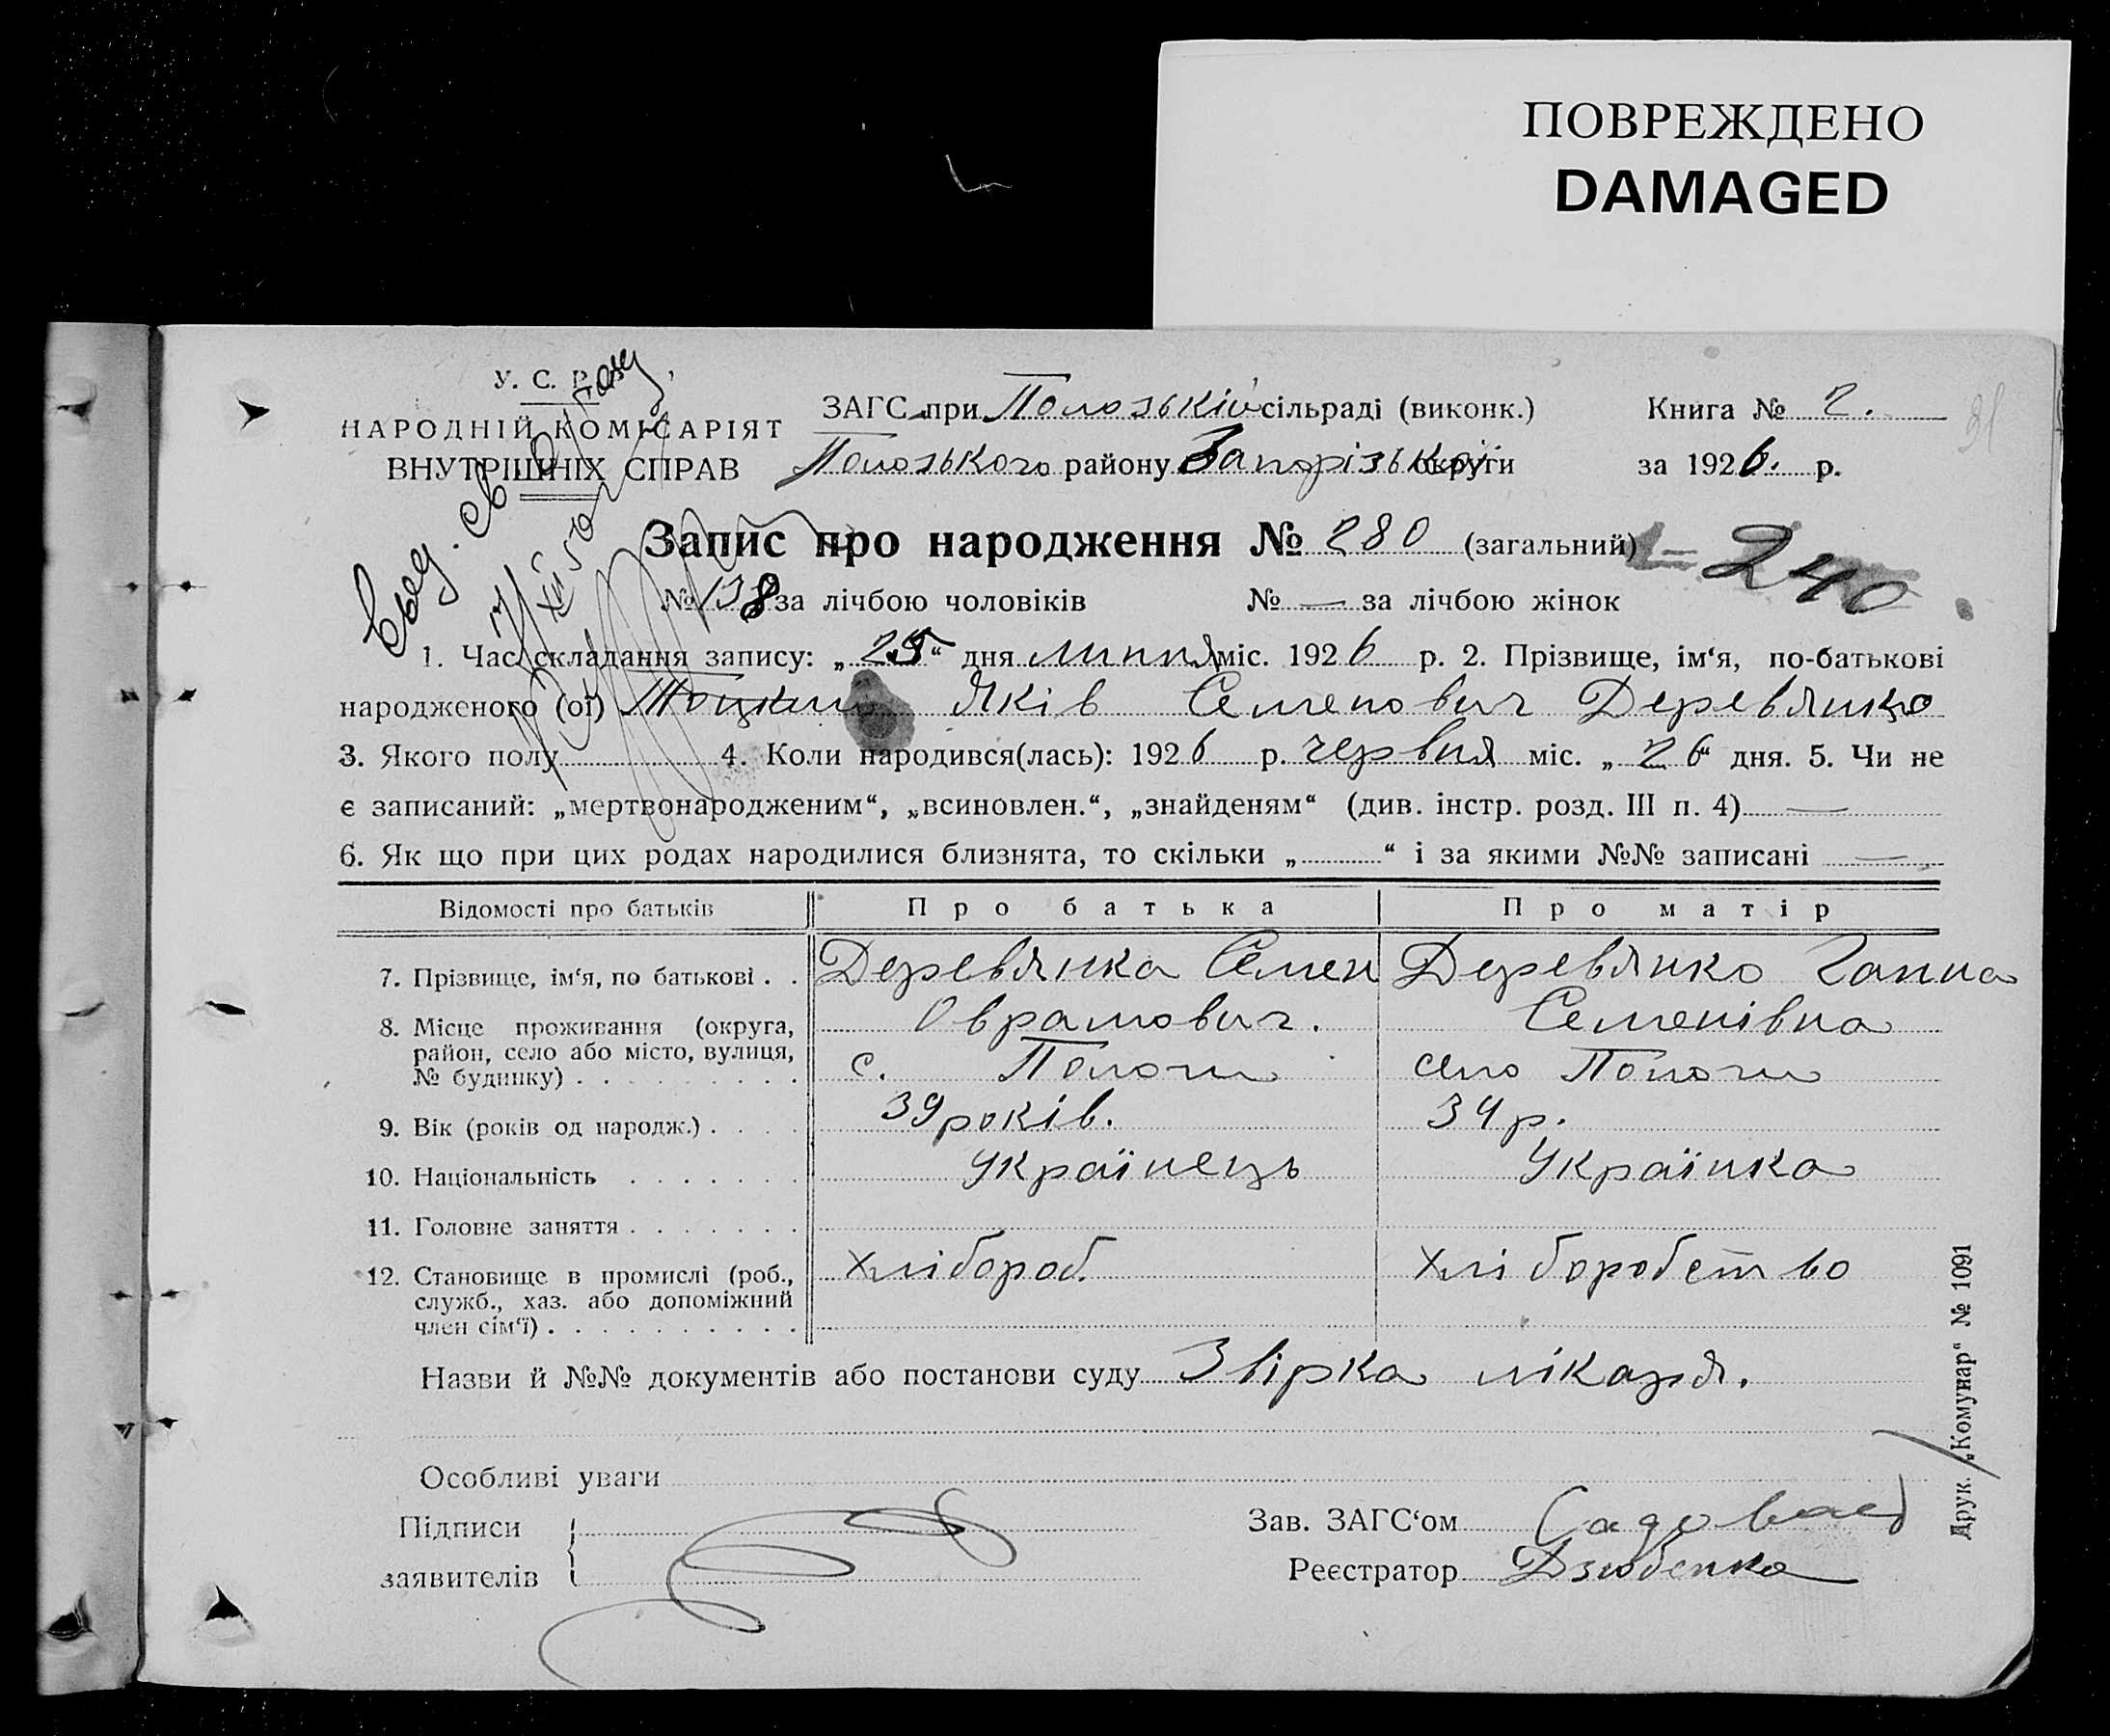 ПОВРЕЖДЕНО
DAMAGED
У. С. Р. Р.
НАРОДНІЙ КОМІСАРІЯТ
ВНУТРІШНІХ СПРАВ
ЗАГС при Пологській сільраді (виконк.)
Пологського району Запорізької округи
Книга № 2.
за 1926. р.
Запис про народження № 280 (загальний)
240
№ 138 за лічбою чоловіків № — за лічбою жінок
1. Час складання запису: „25“ дня липня міс. 1926 р. 2. Прізвище, ім‘я, по-батькові
народженого (ої) Яків Семенович Деревянко
3. Якого полу 4. Коли народився(лась): 1926 р. червня міс. „26“ дня. 5. Чи не
є записаний: „мертвонародженим“, „всиновлен.“, „знайденям“ (див. інстр. розд. III п. 4) —
6. Як що при цих родах народилися близнята, то скільки „ “ і за якими №№ записані —
Відомості про батьків Про батька Про матір
7. Прізвище, ім‘я, по батькові . . Деревянка Семен Деревянко Ганна
Оврамович. Семенівна
8. Місце проживання (округа,
район, село або місто, вулиця,
№ будинку) . . . . . . . . . с. Пологи село Пологи
9. Вік (років од народж.) . . . . 39 років. 34 р.
10. Національність . . . . . . . Українець Українка
11. Головне заняття . . . . . . .
12. Становище в промислі (роб., Хлібороб. Хліборобство
служб., хаз. або допоміжний
член сім‘ї) . . . . . . . . . .
Назви й №№ документів або постанови суду Звірка лікаря.
Особливі уваги
Підписи
заявителів
Зав. ЗАГС‘ом
Реєстратор Дзюбенко
Друк. „Комунар“ № 1091